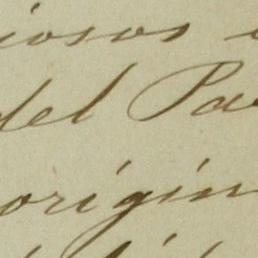 iosos
del Pa
origin